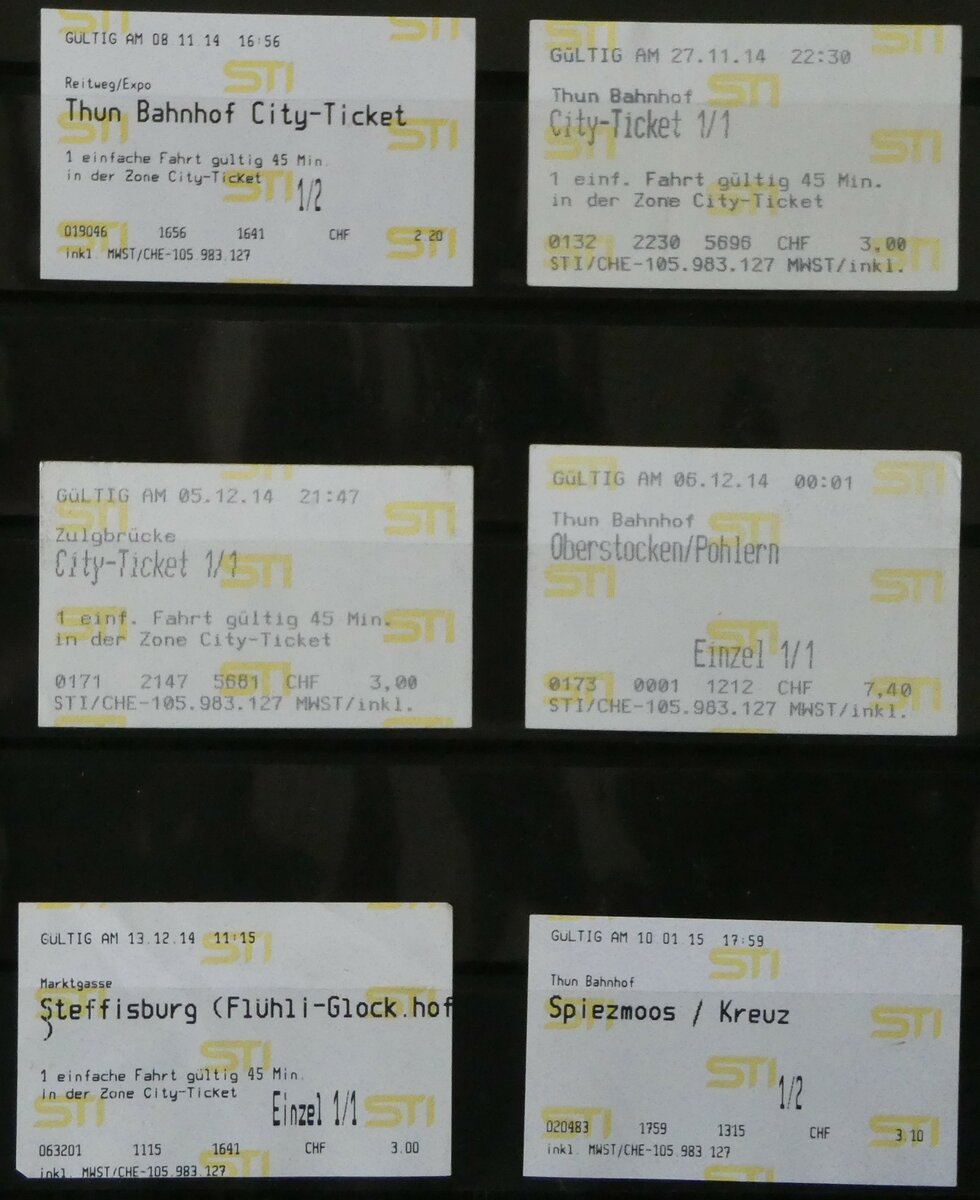 GÜLTIG AM 08 11 14 16:56
Reitweg/Expo
Thun Bahnhof City-Ticket
1 einfache Fahrt gultig 45 Min.
in der Zone City-Ticket
1/2
019046 1656 1641 CHF 2 20
inkl. MWST/CHE-105 983.127
GüLTIG AM 27.11.14 22:30
Thun Bahnhof
City-Ticket 1/1
1 einf. Fahrt gültig 45 Min.
in der Zone City-Ticket
0132 2230 5696 CHF 3,00
STI/CHE-105.983.127 MWST/inkl.
GüLTIG AM 05.12.14 21:47
Zulgbrücke
City-Ticket 1/1
1 einf. Fahrt gültig 45 Min.
in der Zone City-Ticket
0171 2147 5681 CHF 3,00
STI/CHE-105.983.127 MWST/inkl.
GüLTIG AM 06.12.14 00:01
Thun Bahnhof
Oberstocken/Pohlern
Einzel 1/1
0173 0001 1212 CHF 7,40
STI/CHE-105.983.127 MWST/inkl.
GüLTIG AM 13.12.14 11:15
Marktgasse
Steffisburg (Flühli-Glock.hof
)
1 einfache Fahrt gültig 45 Min.
in der Zone City-Ticket
Einzel 1/1
063201 1115 1641 CHF 3.00
inkl. MWST/CHE-105.983.127
GÜLTIG AM 10 01 15 17:59
Thun Bahnhof
Spiezmoos / Kreuz
1/2
020483 1759 1315 CHF 3.10
inkl. MWST/CHE-105.983 127
STI